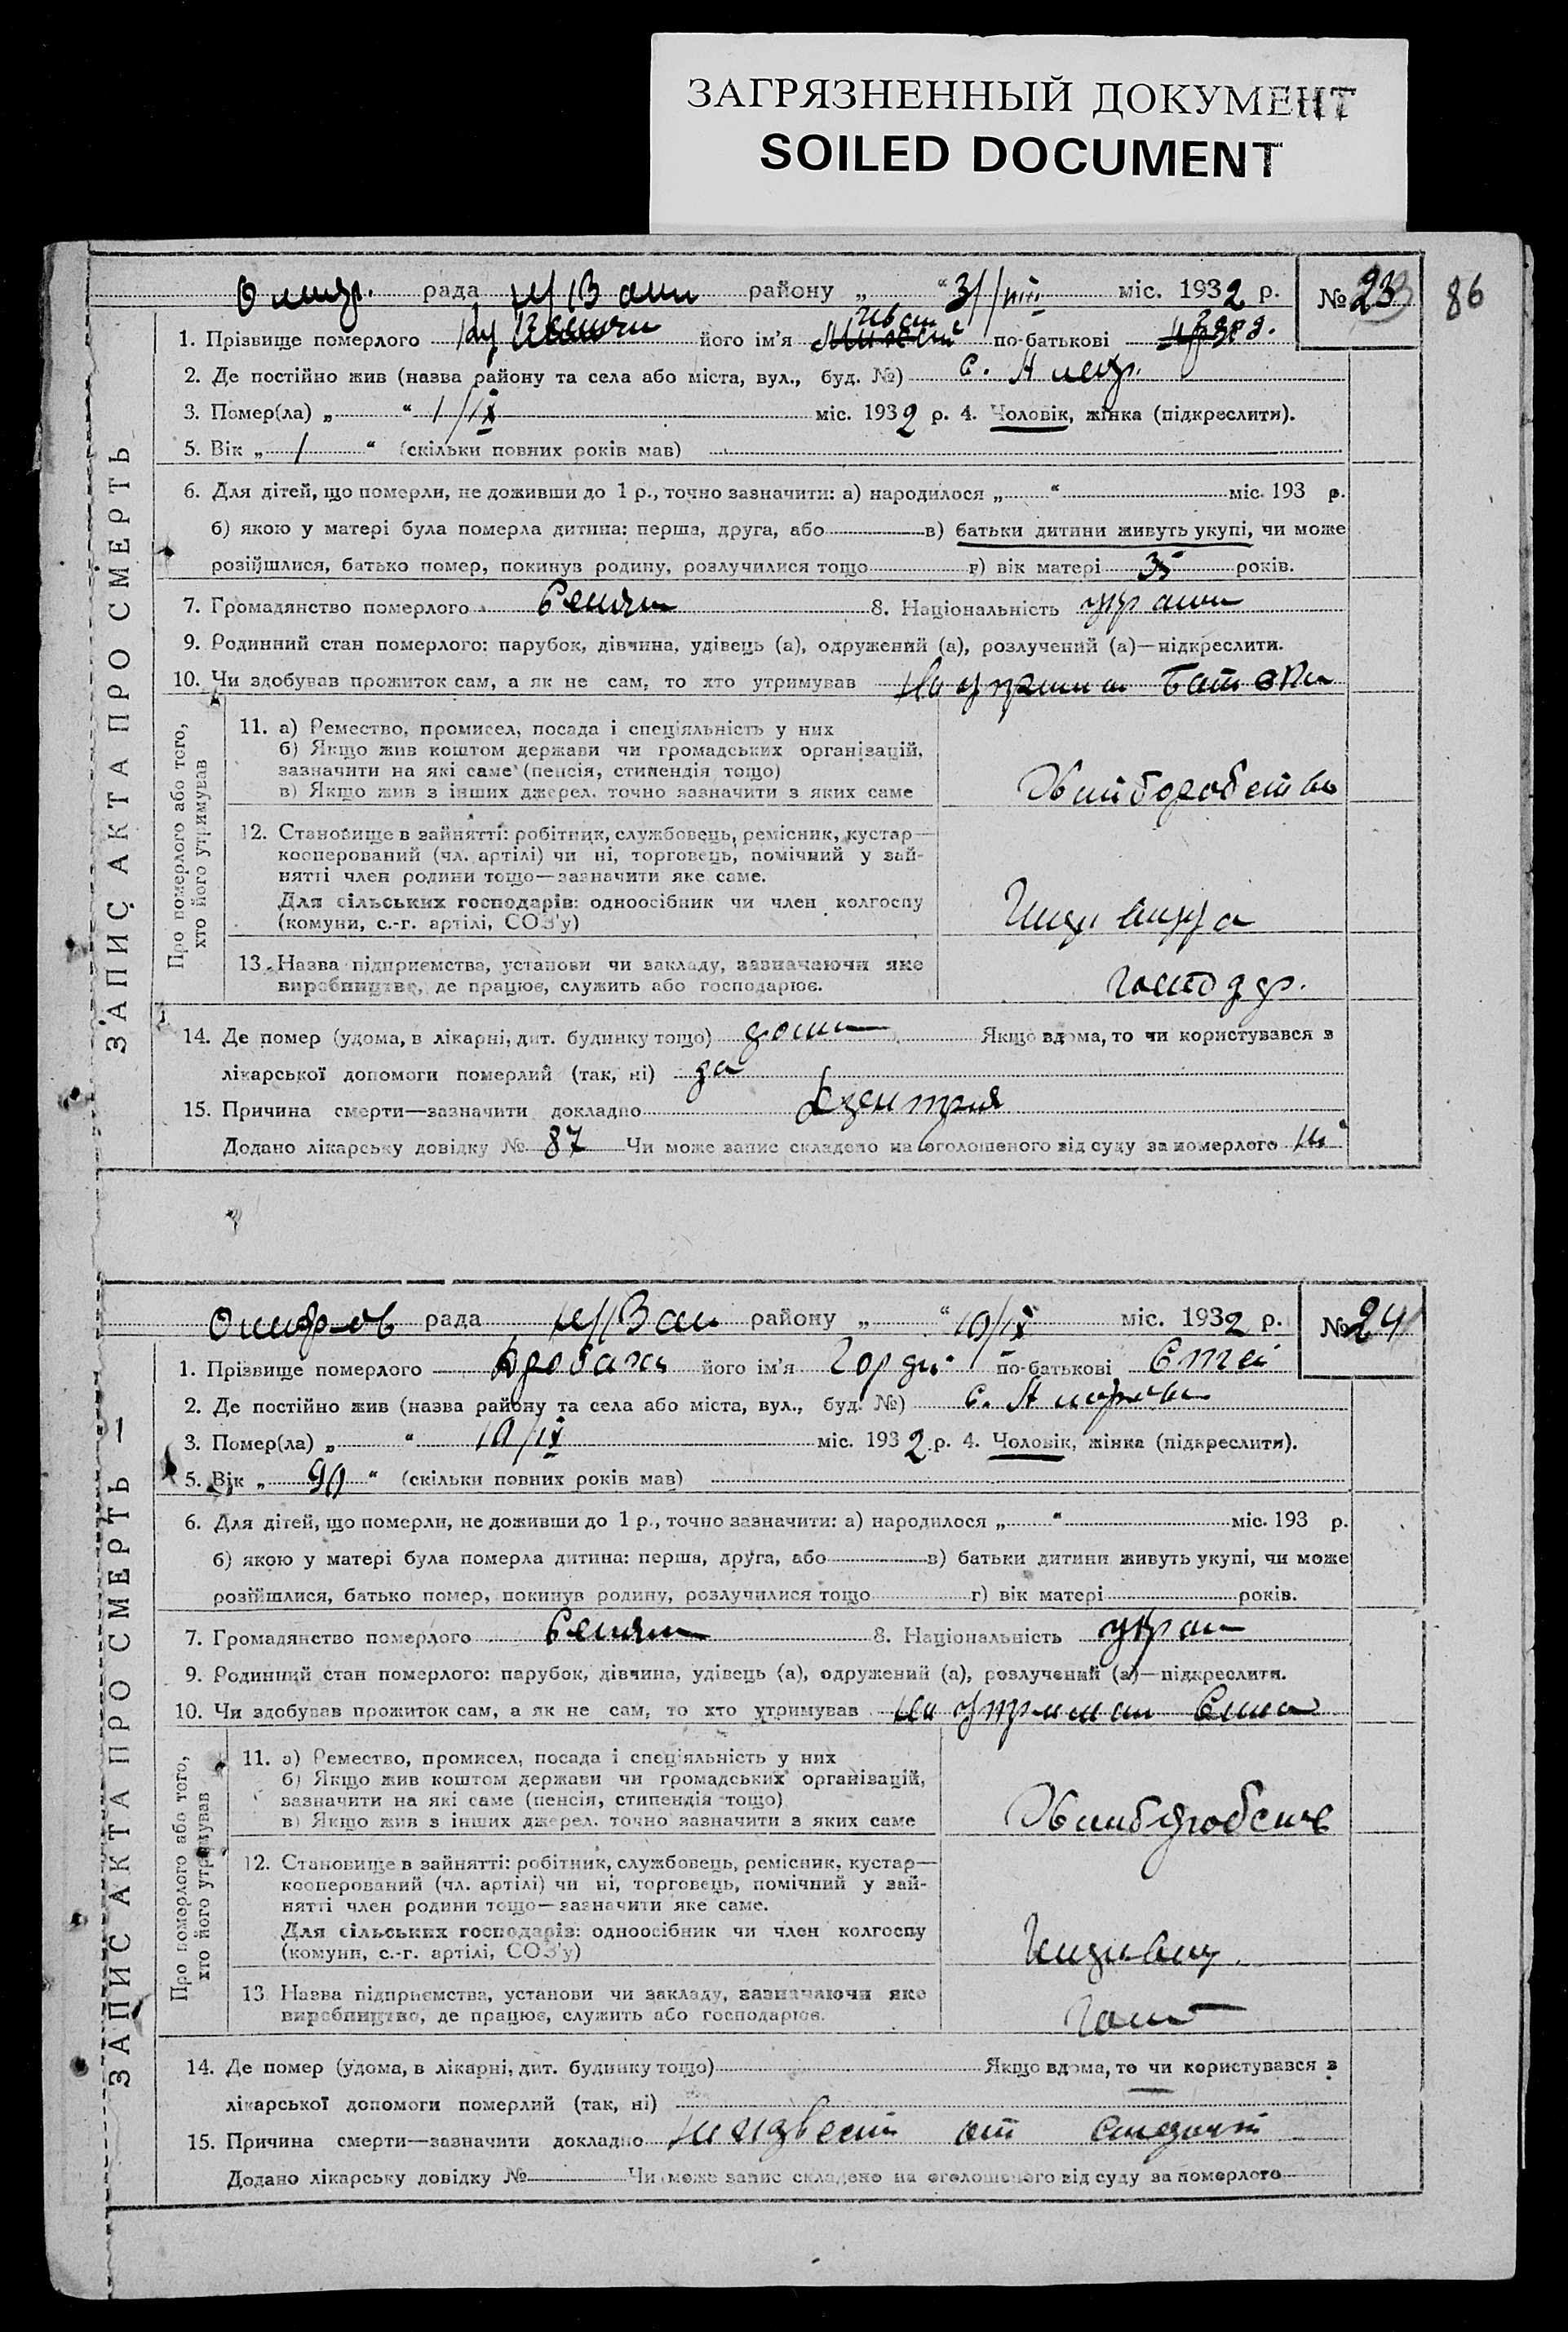 ЗАГРЯЗНЕННЫЙ ДОКУМЕНТ
SOILED DOCUMENT
рада району „ “ 3/ міс. 1932 р. № 23 86
ЗАПИС АКТА ПРО СМЕРТЬ
1. Прізвище померлого його ім'я Иван по-батькові
2. Де постійно жив (назва району та села або міста, вул., буд. №) с.
3. Помер(ла) „ “ 1/IX міс. 1932 р. 4. Чоловік, жінка (підкреслити).
5. Вік „ 1 “ (скільки повних років мав)
6. Для дітей, що померли, не доживши до 1 р., точно зазначити: а) народилося „ “ міс. 193 р.
б) якою у матері була померла дитина: перша, друга, або в) батьки дитини живуть укупі, чи може
розійшлися, батько помер, покинув родину, розлучилися тощо г) вік матері років.
7. Громадянство померлого Селян 8. Національність украин
9. Родинний стан померлого: парубок, дівчина, удівець (а), одружений (а), розлучений (а)—підкреслити.
10. Чи здобував прожиток сам, а як не сам, то хто утримував На утриман Батька
Про померлого або того,
хто його утримував
11. а) Ремество, промисел, посада і спеціяльність у них
б) Якщо жив коштом держави чи громадських організацій,
зазначити на які саме (пенсія, стипендія тощо)
в) Якщо жив з інших джерел. точно зазначити з яких саме
Хліборобств
12. Становище в зайнятті: робітник, службовець, ремісник, кустар—
кооперований (чл. артілі) чи ні, торговець, помічний у зай-
нятті член родини тощо—зазначити яке саме.
Для сільських господарів: одноосібник чи член колгоспу
(комуни, с.-г. артілі, СОЗ'у)
13. Назва підприємства, установи чи закладу, зазначаючи яке
виробництво, де працює, служить або господарює.
14. Де помер (удома, в лікарні, дит. будинку тощо) дома Якщо вдома, то чи користувався з
лікарської допомоги померлий (так, ні) да
15. Причина смерти—зазначити докладно Дезинтрия
Додано лікарську довідку № 87 Чи може запис складено на оголошеного від суду за померлого ні
рада району „ “ 10/IX міс. 1932 р. № 24
ЗАПИС АКТА ПРО СМЕРТЬ
1. Прізвище померлого його ім'я Горди по-батькові
2. Де постійно жив (назва району та села або міста, вул., буд. №) с.
3. Помер(ла) „ “ 10/IX міс. 1932 р. 4. Чоловік, жінка (підкреслити).
5. Вік „ 90 “ (скільки повних років мав)
6. Для дітей, що померли, не доживши до 1 р., точно зазначити: а) народилося „ “ міс. 193 р.
б) якою у матері була померла дитина: перша, друга, або в) батьки дитини живуть укупі, чи може
розійшлися, батько помер, покинув родину, розлучилися тощо г) вік матері років.
7. Громадянство померлого Селян 8. Національність украи
9. Родинний стан померлого: парубок, дівчина, удівець (а), одружений (а), розлучений (а)—підкреслити.
10. Чи здобував прожиток сам, а як не сам, то хто утримував На утриман Сина
Про померлого або того,
хто його утримував
11. а) Ремество, промисел, посада і спеціяльність у них
б) Якщо жив коштом держави чи громадських організацій,
зазначити на які саме (пенсія, стипендія тощо)
в) Якщо жив з інших джерел. точно зазначити з яких саме
12. Становище в зайнятті: робітник, службовець, ремісник, кустар—
кооперований (чл. артілі) чи ні, торговець, помічний у зай-
нятті член родини тощо—зазначити яке саме.
Для сільських господарів: одноосібник чи член колгоспу
(комуни, с.-г. артілі, СОЗ'у)
13. Назва підприємства, установи чи закладу, зазначаючи яке
виробництво, де працює, служить або господарює.
14. Де помер (удома, в лікарні, дит. будинку тощо) Якщо вдома, то чи користувався з
лікарської допомоги померлий (так, ні)
15. Причина смерти—зазначити докладно от
Додано лікарську довідку № Чи може запис складено на оголошеного від суду за померлого